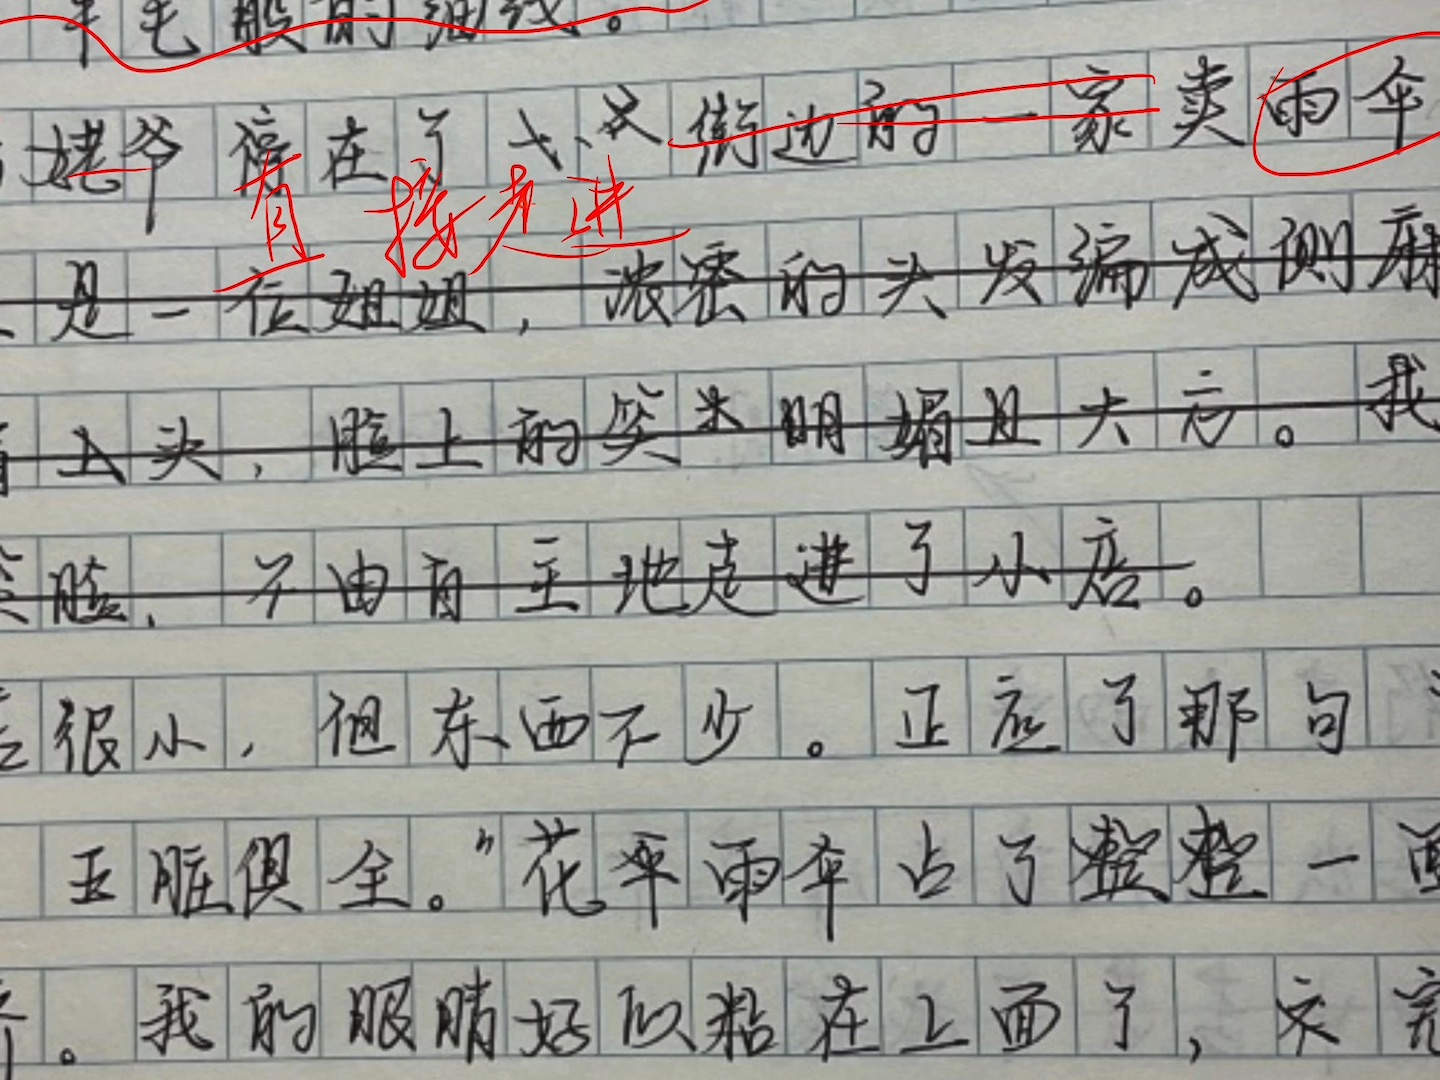 羊毛般的细线。
姥爷停在了 街边的一家卖雨伞
直接走进
是一位姐姐，浓密的头发编成侧麻
头，脸上的笑 明媚且大方。我
笑脸，不由自主地走进了小店。
很小，但东西不少。正应了那句
五脏俱全。”花伞雨伞占了整整一面
。我的眼睛好似粘在上面了，完